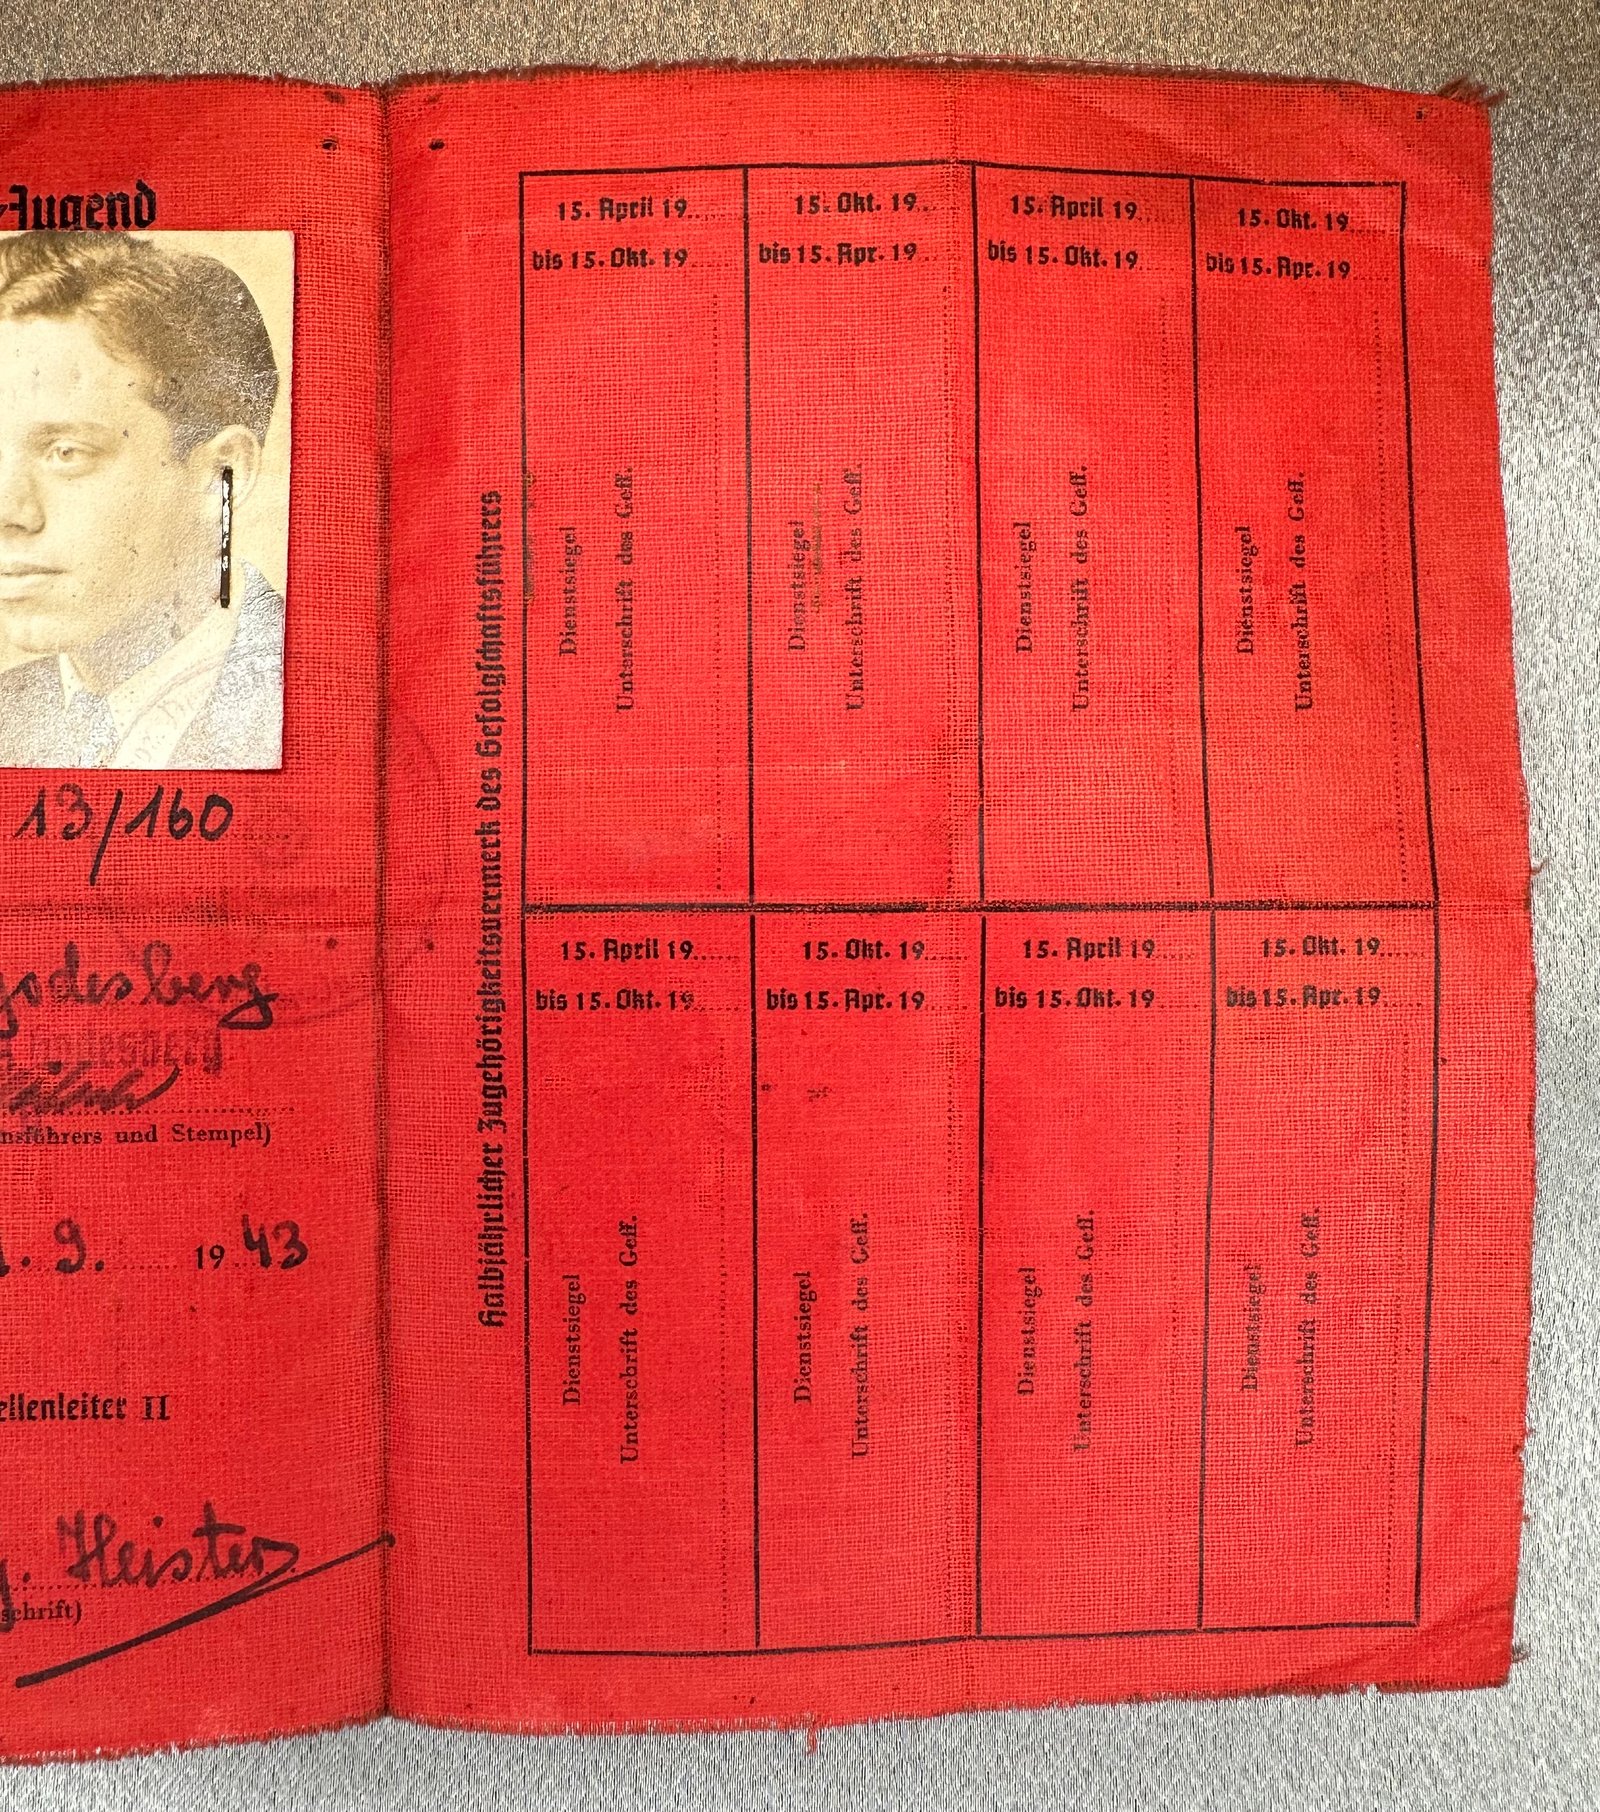 -Jugend
13/160
godesberg
Godesberg
nsführers und Stempel)
9. 19 43
ellenleiter II
Heister
schrift)
Halbjährlicher Zugehörigkeitsvermerk des Gefolgschaftsführers
15. April 19
bis 15. Okt. 19
Dienstsiegel
Unterschrift des Geff.
15. Okt. 19
bis 15. Apr. 19
Dienstsiegel
Unterschrift des Geff.
15. April 19
bis 15. Okt. 19
Dienstsiegel
Unterschrift des Geff.
15. Okt. 19
bis 15. Apr. 19
Dienstsiegel
Unterschrift des Geff.
15. April 19
bis 15. Okt. 19
Dienstsiegel
Unterschrift des Geff.
15. Okt. 19
bis 15. Apr. 19
Dienstsiegel
Unterschrift des Geff.
15. April 19
bis 15. Okt. 19
Dienstsiegel
Unterschrift des Geff.
15. Okt. 19
bis 15. Apr. 19
Dienstsiegel
Unterschrift des Geff.